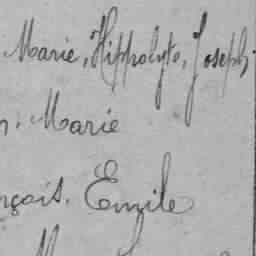 Marie, Hippolyte, Joseph
n. Marie
nçois. Emile